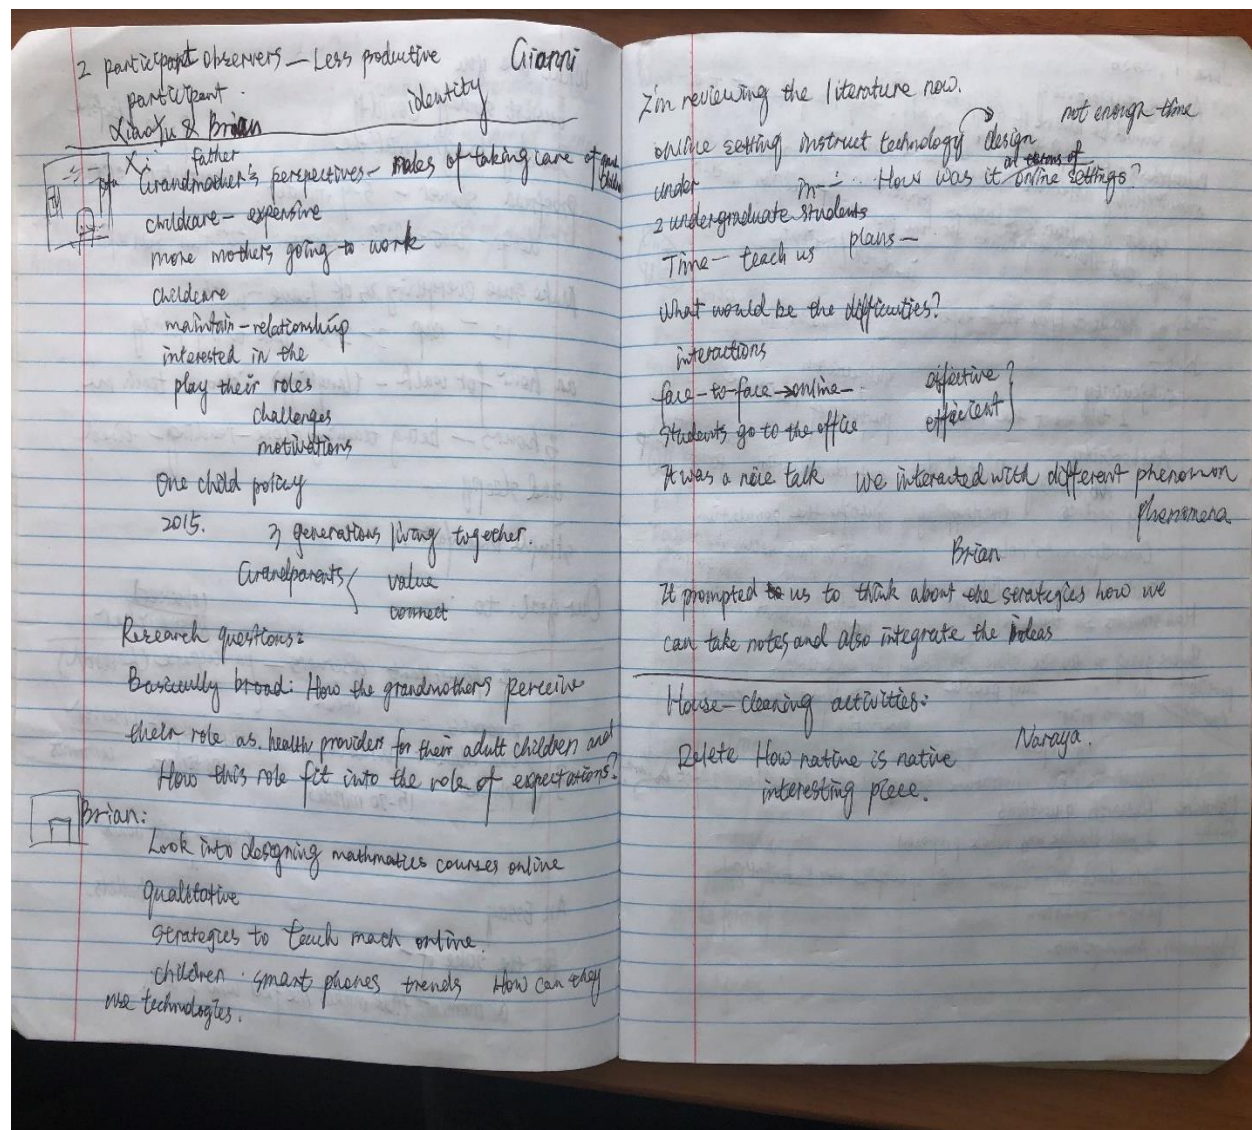 2 participant observers — Less productive Gianni
participant. identity
XiaoXu & Brian
Xi father
Grandmother's perspectives — roles of taking care of
childcare — expensive
more mothers going to work
childcare
maintain - relationship
interested in the
play their roles
challenges
motivations
One child policy
2015. 3 generations living together.
Grandparents value
connect
Research questions:
Basically broad: How the grandmothers perceive
their role as health providers for their adult children and
How this role fit into the role of expectations?
Brian:
Look into designing mathmatics courses online
qualitative
strategies to teach mach online.
children. smart phones trends How can they
use technologies.
I'm reviewing the literature now.
not enough time
online setting instruct technology design
under in -- How was it online settings?
2 undergraduate students
Time — teach us plans —
What would be the difficulties?
interactions
face-to-face → online — effective
students go to the office efficient
It was a nice talk we interacted with different phenomon
phenomena
Brian
It prompted us to think about the strategies how we
can take notes and also integrate the ideas
House-cleaning activities:
Delete How native is native Naraya.
interesting piece.